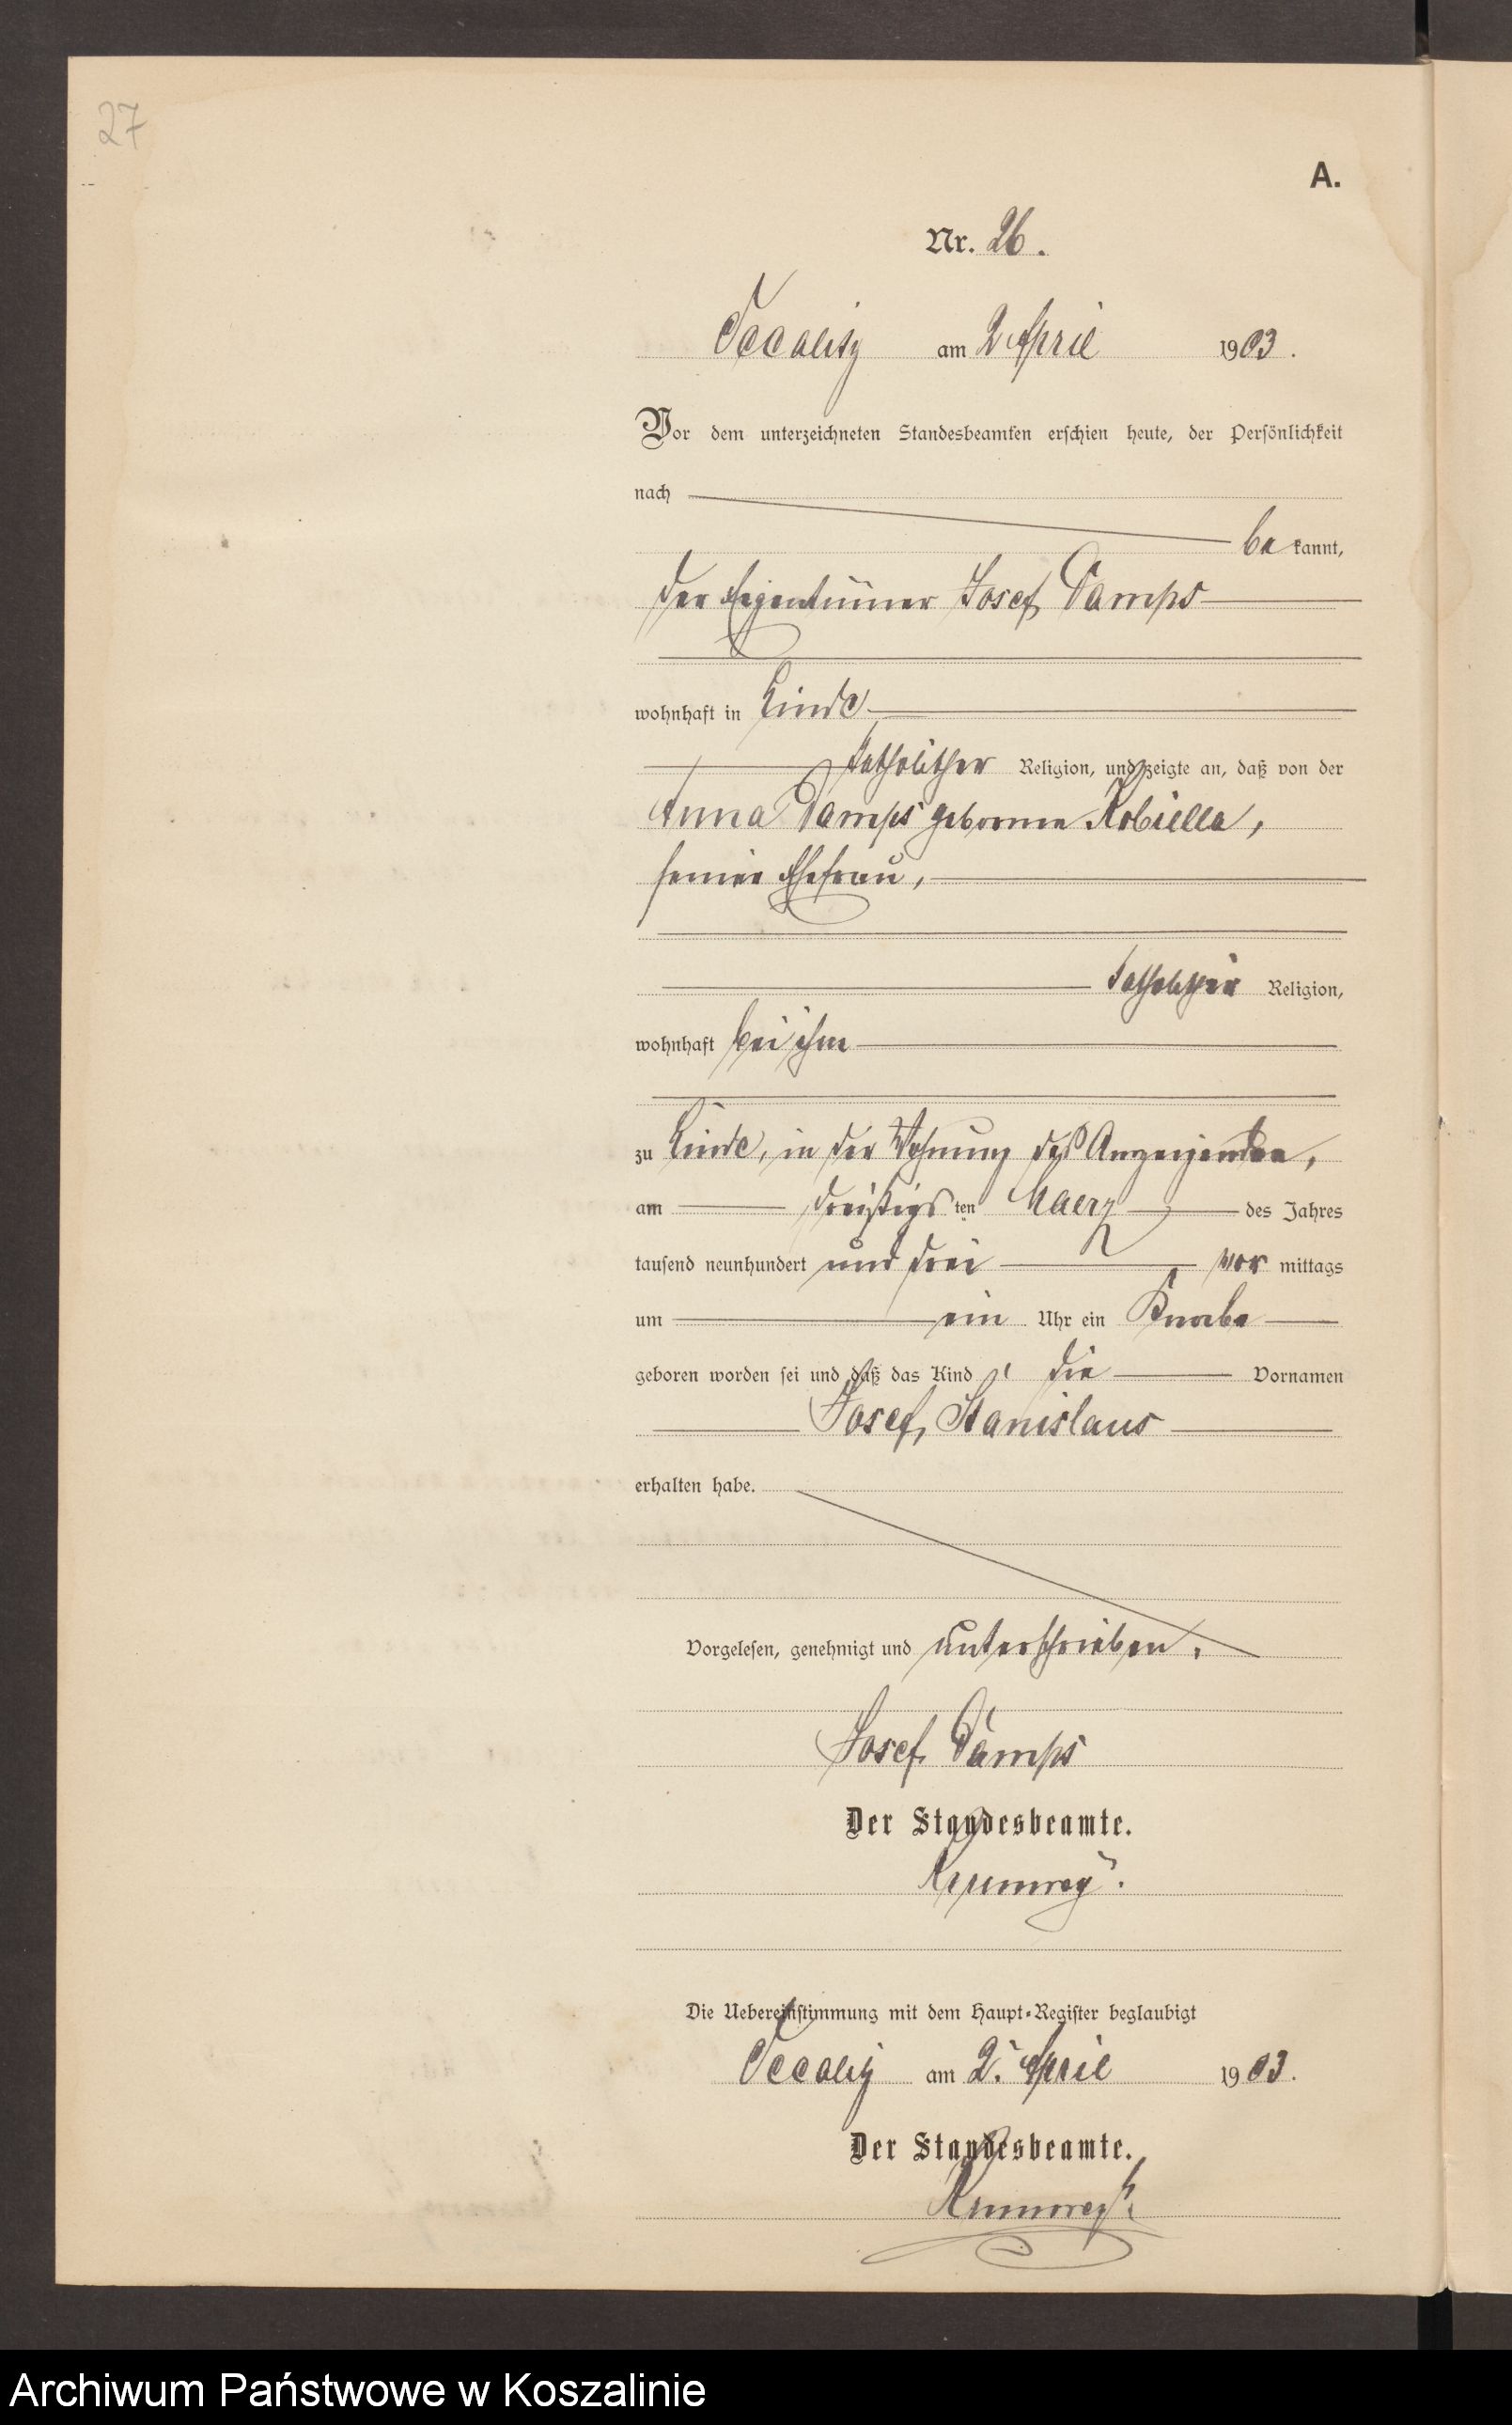 27
A.
Nr. 26.
Occalitz am 2 April 1903.
Vor dem unterzeichneten Standesbeamten erschien heute, der Persönlichkeit
nach
be kannt,
der Eigentümer Josef Damps
wohnhaft in Linde
katholischer Religion, und zeigte an, daß von der
Anna Damps geborene Kobiella,
seiner Ehefrau,
katholischer Religion,
wohnhaft bei ihm
zu Linde, in der Wohnung des Anzeigenden,
am dreißigsten Maerz des Jahres
tausend neunhundert und drei vor mittags
um ein Uhr ein Knabe
geboren worden sei und daß das Kind die Vornamen
Josef, Stanislaus
erhalten habe.
Vorgelesen, genehmigt und unterschrieben.
Josef Damps
Der Standesbeamte.
Die Uebereinstimmung mit dem Haupt-Register beglaubigt
Occalitz am 2. April 1903.
Der Standesbeamte.
Archiwum Państwowe w Koszalinie